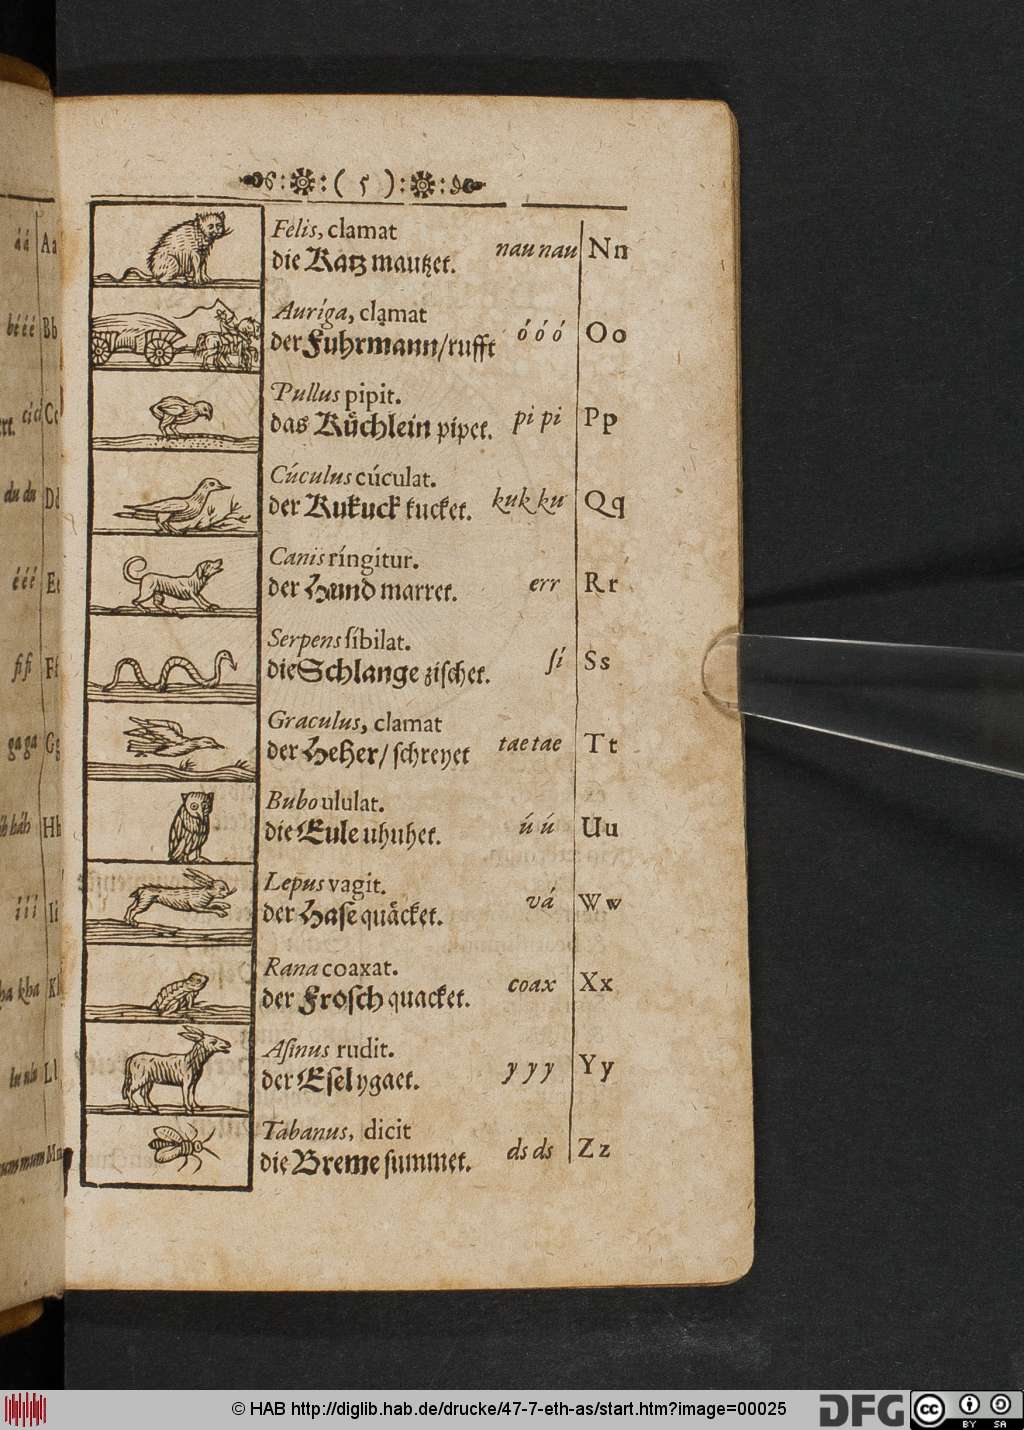 ( 5 )
Felis, clamat
die Katz mautzet.
nau nau
Nn
Auríga, clamat
der Fuhrmann/rufft
ó ó ó
Oo
Pullus pipit.
das Küchlein pipet.
pi pi
Pp
Cúculus cúculat.
der Kukuck kucket.
kuk ku
Qq
Canis ríngitur.
der Hund marret.
err
Rr
Serpens síbilat.
die Schlange zischet.
ſí
Ss
Graculus, clamat
der Heher/ schreyet
tae tae
Tt
Bubo ululat.
die Eule uhuhet.
ú ú
Uu
Lepus vagit.
der Hase quäcket.
vá
Ww
Rana coaxat.
der Frosch quacket.
coax
Xx
Aſinus rudit.
der Esel ygaet.
y y y
Yy
Tabanus, dicit
die Breme summet.
ds ds
Zz
á á
Aa
bé é é
Bb
Cc
du du
Dd
é é é
Ee
fi fi
Ff
ga ga
Gg
háh
Hh
í í í
Ii
kha
Kk
Ll
mum
Mm
© HAB http://diglib.hab.de/drucke/47-7-eth-as/start.htm?image=00025
DFG
cc
BY SA